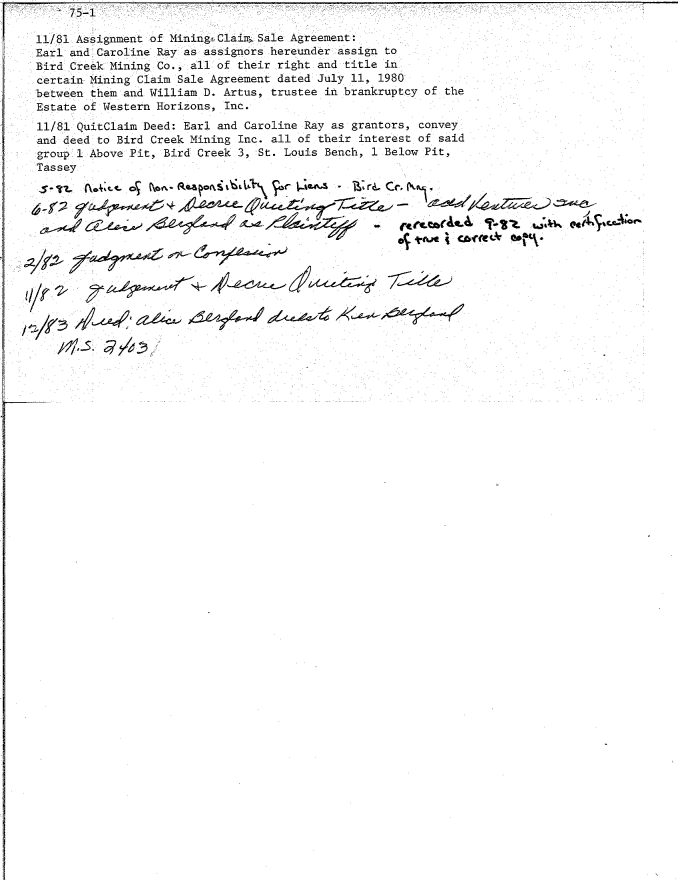 75-1
11/81 Assignment of Mining Claim Sale Agreement:
Earl and Caroline Ray as assignors hereunder assign to
Bird Creek Mining Co., all of their right and title in
certain Mining Claim Sale Agreement dated July 11, 1980
between them and William D. Artus, trustee in brankruptcy of the
Estate of Western Horizons, Inc.
11/81 QuitClaim Deed: Earl and Caroline Ray as grantors, convey
and deed to Bird Creek Mining Inc. all of their interest of said
group 1 Above Pit, Bird Creek 3, St. Louis Bench, 1 Below Pit,
Tassey
5-82 Notice of Non-Responsibility for Liens - Bird Cr. Mng.
6-82 Judgement + Decree Quieting Title - Ventures Inc
and Alice Bergland as Plaintiff - rerecorded 9-82 with certification
of true & correct copy.
2/82 Judgment on Confession
11/82 Judgement + Decree Quieting Title
12/83 Deed: Alice Bergland deeds to Ken Bergland
M.S. 2403